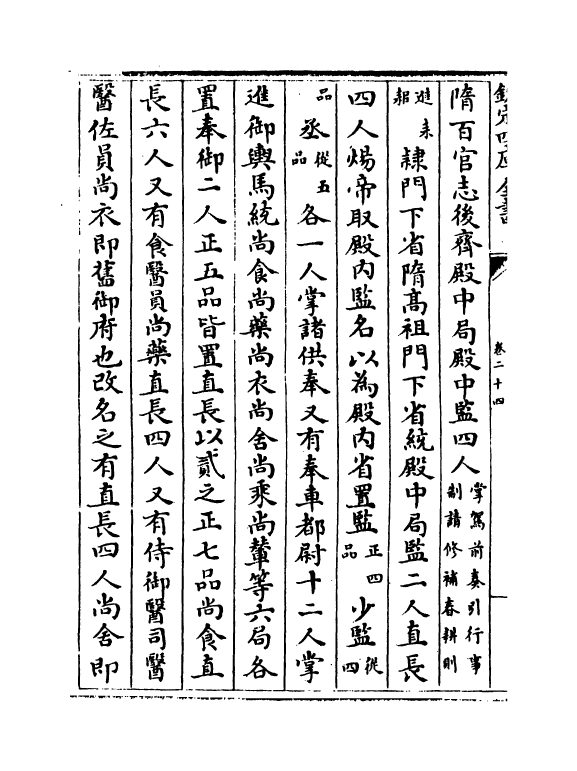 欽定四庫全書
卷二十四
隋百官志後齊殿中局殿中監四人掌駕前奏引行事制請修補春耕則
進耒耜隸門下省隋髙祖門下省統殿中局監二人直長
四人煬帝取殿内監名以為殿内省置監正四品少監從四
品丞從五品各一人掌諸供奉又有奉車都尉十二人掌
進御輿馬統尚食尚藥尚衣尚舍尚乘尚輦等六局各
置奉御二人正五品皆置直長以貳之正七品尚食直
長六人又有食醫員尚藥直長四人又有侍御醫司醫
醫佐員尚衣即舊御府也改名之有直長四人尚舍即